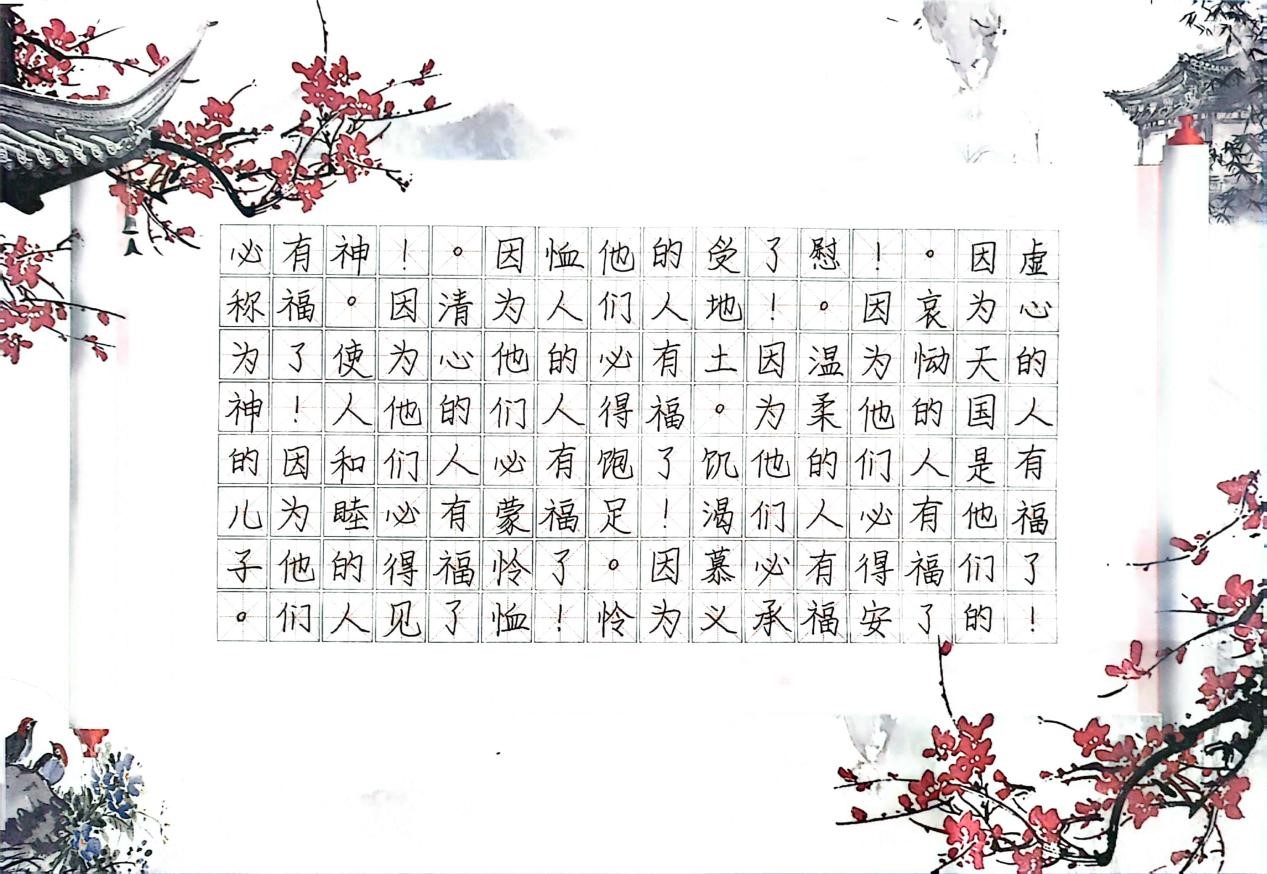 虚心的人有福了！
因为天国是他们的
。哀恸的人有福了
！因为他们必得安
慰。温柔的人有福
了！因为他们必承
受地土。饥渴慕义
的人有福了！因为
他们必得饱足。怜
恤人的人有福了！
因为他们必蒙怜恤
。清心的人有福了
！因为他们必得见
神。使人和睦的人
有福了！因为他们
必称为神的儿子。